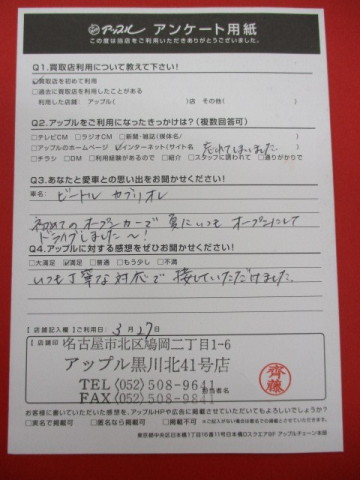 アップル アンケート用紙
この度は当店をご利用いただきありがとうございました。
Q1.買取店利用について教えて下さい!
買取店を初めて利用
□過去に買取店を利用したことがある
利用した店舗: アップル( )店 その他( )
Q2.アップルをご利用になったきっかけは?(複数回答可)
□テレビCM □ラジオCM □新聞・雑誌(媒体名/ )
□アップルのホームページ ☑インターネット(サイト名 忘れてしまいました )
□チラシ □DM □利用経験があるので □紹介 □スタッフに誘われて □通りがかりで
Q3.あなたと愛車との思い出をお聞かせください!
車名: ビートル カブリオレ
初めてのオープンカーで 夏にいつも オープンにして
ドライブしました〜!
Q4.アップルに対する感想をぜひお聞かせください!
□大満足 ☑満足 □普通 □もう少し □不満
いつも丁寧な対応で 接していただけました。
【店舗記入欄】ご利用日: 3月27日
【店舗印】
名古屋市北区鳩岡二丁目1-6
アップル黒川北41号店
TEL (052) 508-9641
FAX (052) 508-9841
担当者名
齊藤
お客様に書いていただいた感想を、アップルHPや広告に掲載させていただいてもよろしいでしょうか?
□実名で掲載可 □匿名なら掲載可 □掲載不可
東京都中央区日本橋1丁目16番11号日本橋Dスクエア5F アップルチェーン本部